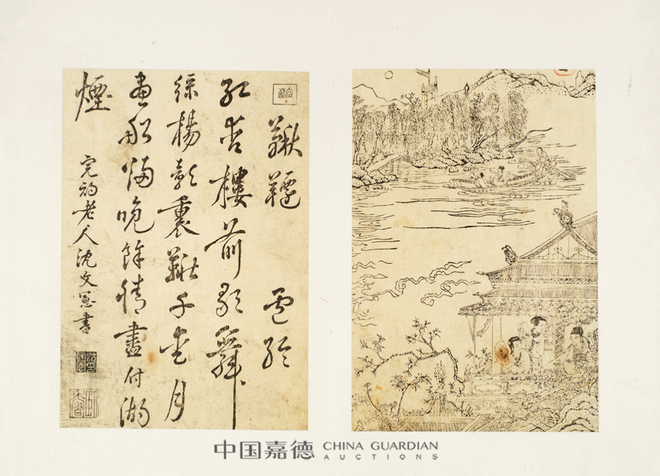 鞦韆
紅杏樓前歌舞
綠楊影裏鞦千月
畫船歸晚餘情盡付湖
煙
完初老人沈文憲書
中国嘉德 CHINA GUARDIAN
AUCTIONS